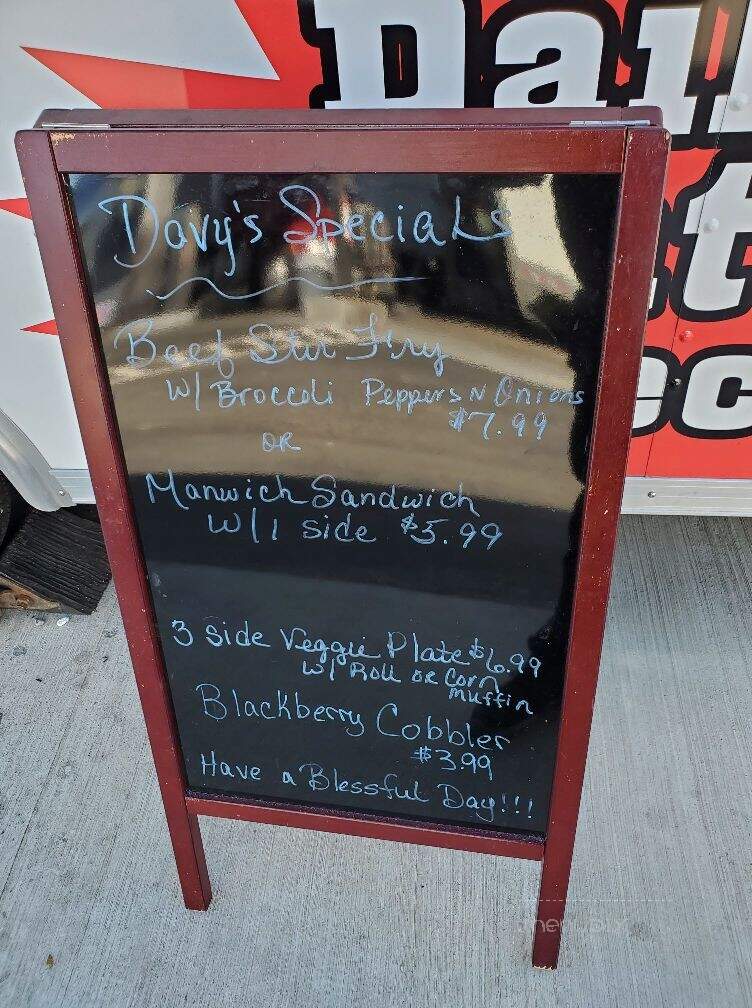 Davy's Specials
Beef Stir Fry
w/ Broccoli Peppers N Onions
$7.99
OR
Manwich Sandwich
w/1 side $5.99
3 side Veggie Plate $6.99
w/ Roll or Corn
muffin
Blackberry Cobbler
$3.99
Have a Blessful Day!!!